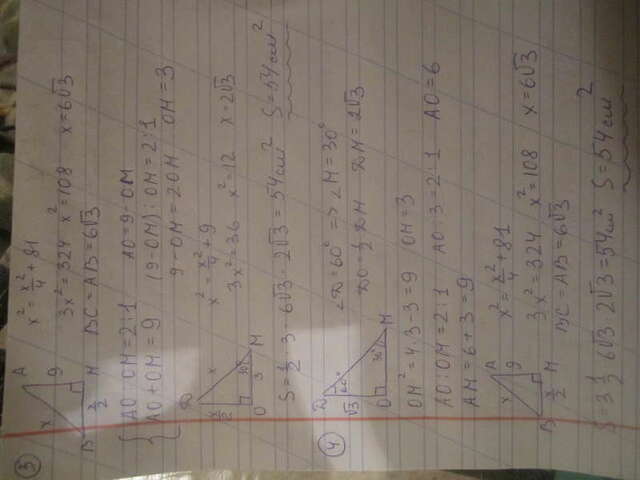 ③ A x 9 B x/2 M
x² = x²/4 + 81
3x² = 324 x² = 108 x = 6√3
BC = AB = 6√3
{ AO : OM = 2:1 AO = 9 - OM
AO + OM = 9 (9 - OM) : OM = 2:1
9 - OM = 2OM OM = 3
D x/2 x O 3 30° M
x² = x²/4 + 9
3x² = 36 x² = 12 x = 2√3
S = 1/2 · 3 · 6√3 · 2√3 = 54 см² S = 54 см²
④ D 60° √3 O 30° M
∠D = 60° => ∠M = 30°
DO = 1/2 DM DM = 2√3
OM² = 4 · 3 - 3 = 9 OM = 3
AO : OM = 2:1 AO : 3 = 2:1 AO = 6
AM = 6 + 3 = 9
A x 9 B x/2 M
x² = x²/4 + 81
3x² = 324 x² = 108 x = 6√3
BC = AB = 6√3
S = 3 1/2 6√3 2√3 = 54 см² S = 54 см²